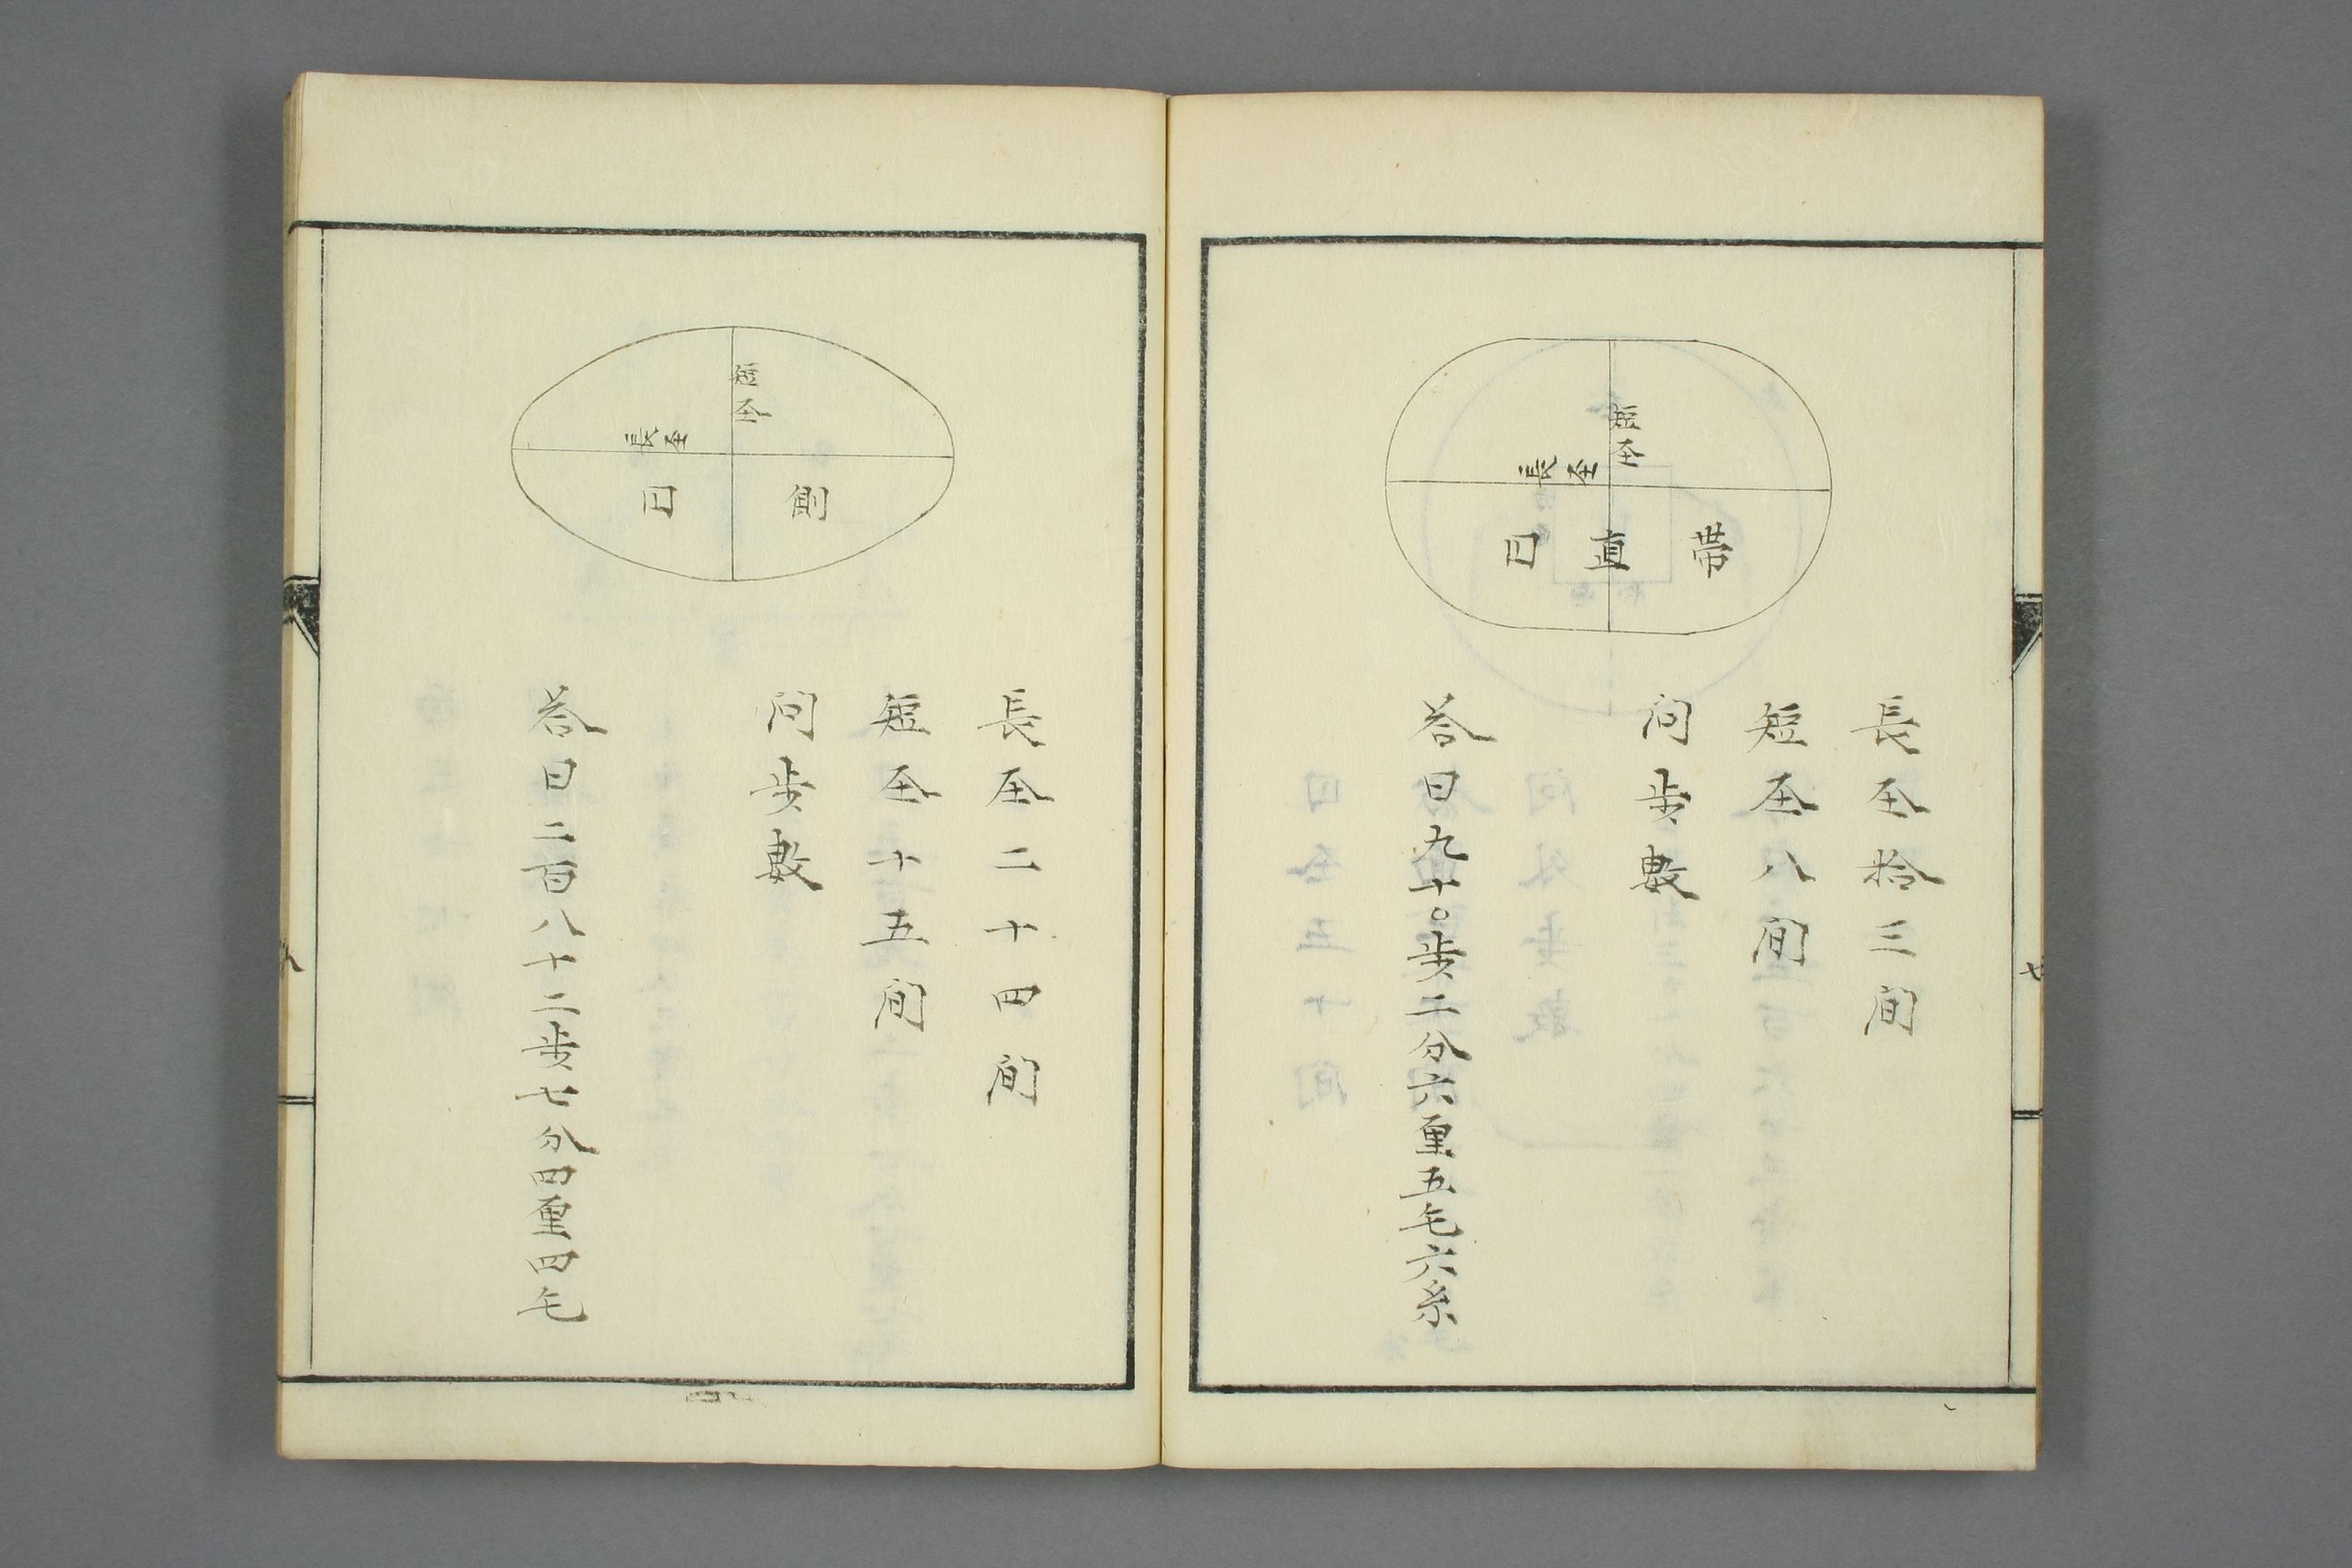 短径
長径
帯直円
長径拾三間
短径八間
問歩数
答曰九十〇歩二分六厘五毛六糸
七
短径
長径
側円
長径二十四間
短径十五間
問歩数
答曰二百八十二歩七分四厘四毛